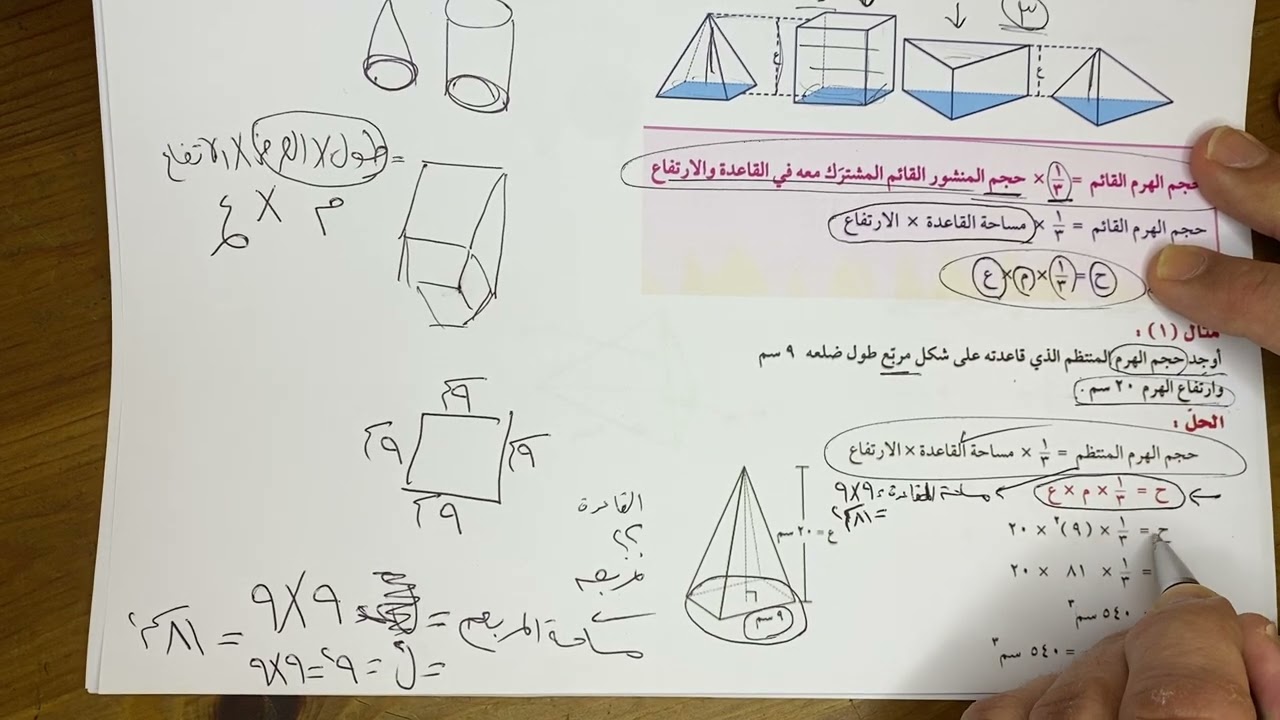 ٣
ع
ع
حجم الهرم القائم = ١/٣ × حجم المنشور القائم المشترك معه في القاعدة والارتفاع
حجم الهرم القائم = ١/٣ × مساحة القاعدة × الارتفاع
ح = ١/٣ × م × ع
مثال (١) :
أوجد حجم الهرم المنتظم الذي قاعدته على شكل مربّع طول ضلعه ٩ سم
وارتفاع الهرم ٢٠ سم .
الحلّ :
حجم الهرم المنتظم = ١/٣ × مساحة القاعدة × الارتفاع
ح = ١/٣ × م × ع
مساحة القاعدة = ٩×٩
= ٨١ سم٢
ح = ١/٣ × (٩)٢ × ٢٠
= ١/٣ × ٨١ × ٢٠
٥٤٠ سم٣
= ٥٤٠ سم٣
ع = ٢٠ سم
٩ سم
= طول × العرض × الارتفاع
م × ع
٩ سم
٩ سم
٩ سم
٩ سم
القاعدة
؟؟
مربعه
مساحة المربع = ٩×٩ = ٨١ سم٢
= ل٢ = ٩٢ = ٩×٩